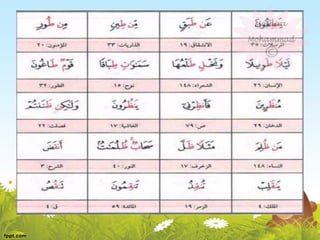 يَنطِقُونَ عَن طَبَقٍ مِّن طِينٍ مِن طُورِ
المرسلات: ٣٥ الانشقاق: ١٩ الذاريات: ٣٣ المؤمنون: ٢٠
لَيْلًا طَوِيلًا وَنَخْلٍ طَلْعُهَا سَمَٰوَٰتٍ طِبَاقًا قَوْمٌ طَاغُونَ
الإنسان: ٢٦ الشعراء: ١٤٨ نوح: ١٥ الطور: ٣٢
مُنظَرِينَ فَأَنظِرْنِي يَنظُرُونَ وَلَٰكِن ظَنَنتُمْ
الدخان: ٢٩ ص: ٧٩ الغاشية: ١٧ فصلت: ٢٢
مَن ظُلِمَ مَثَلًا ظَلَّ سَحَابٌ ظُلُمَٰتٌ أَنقَضَ
النساء: ١٤٨ الزخرف: ١٧ النور: ٤٠ الشرح: ٣
يَنقَلِبْ تُنقِذُ تَنقِمُونَ تَنقُصُ
الملك: ٤ الزمر: ١٩ المائدة: ٥٩ ق: ٤
Mohammad
fppt.com